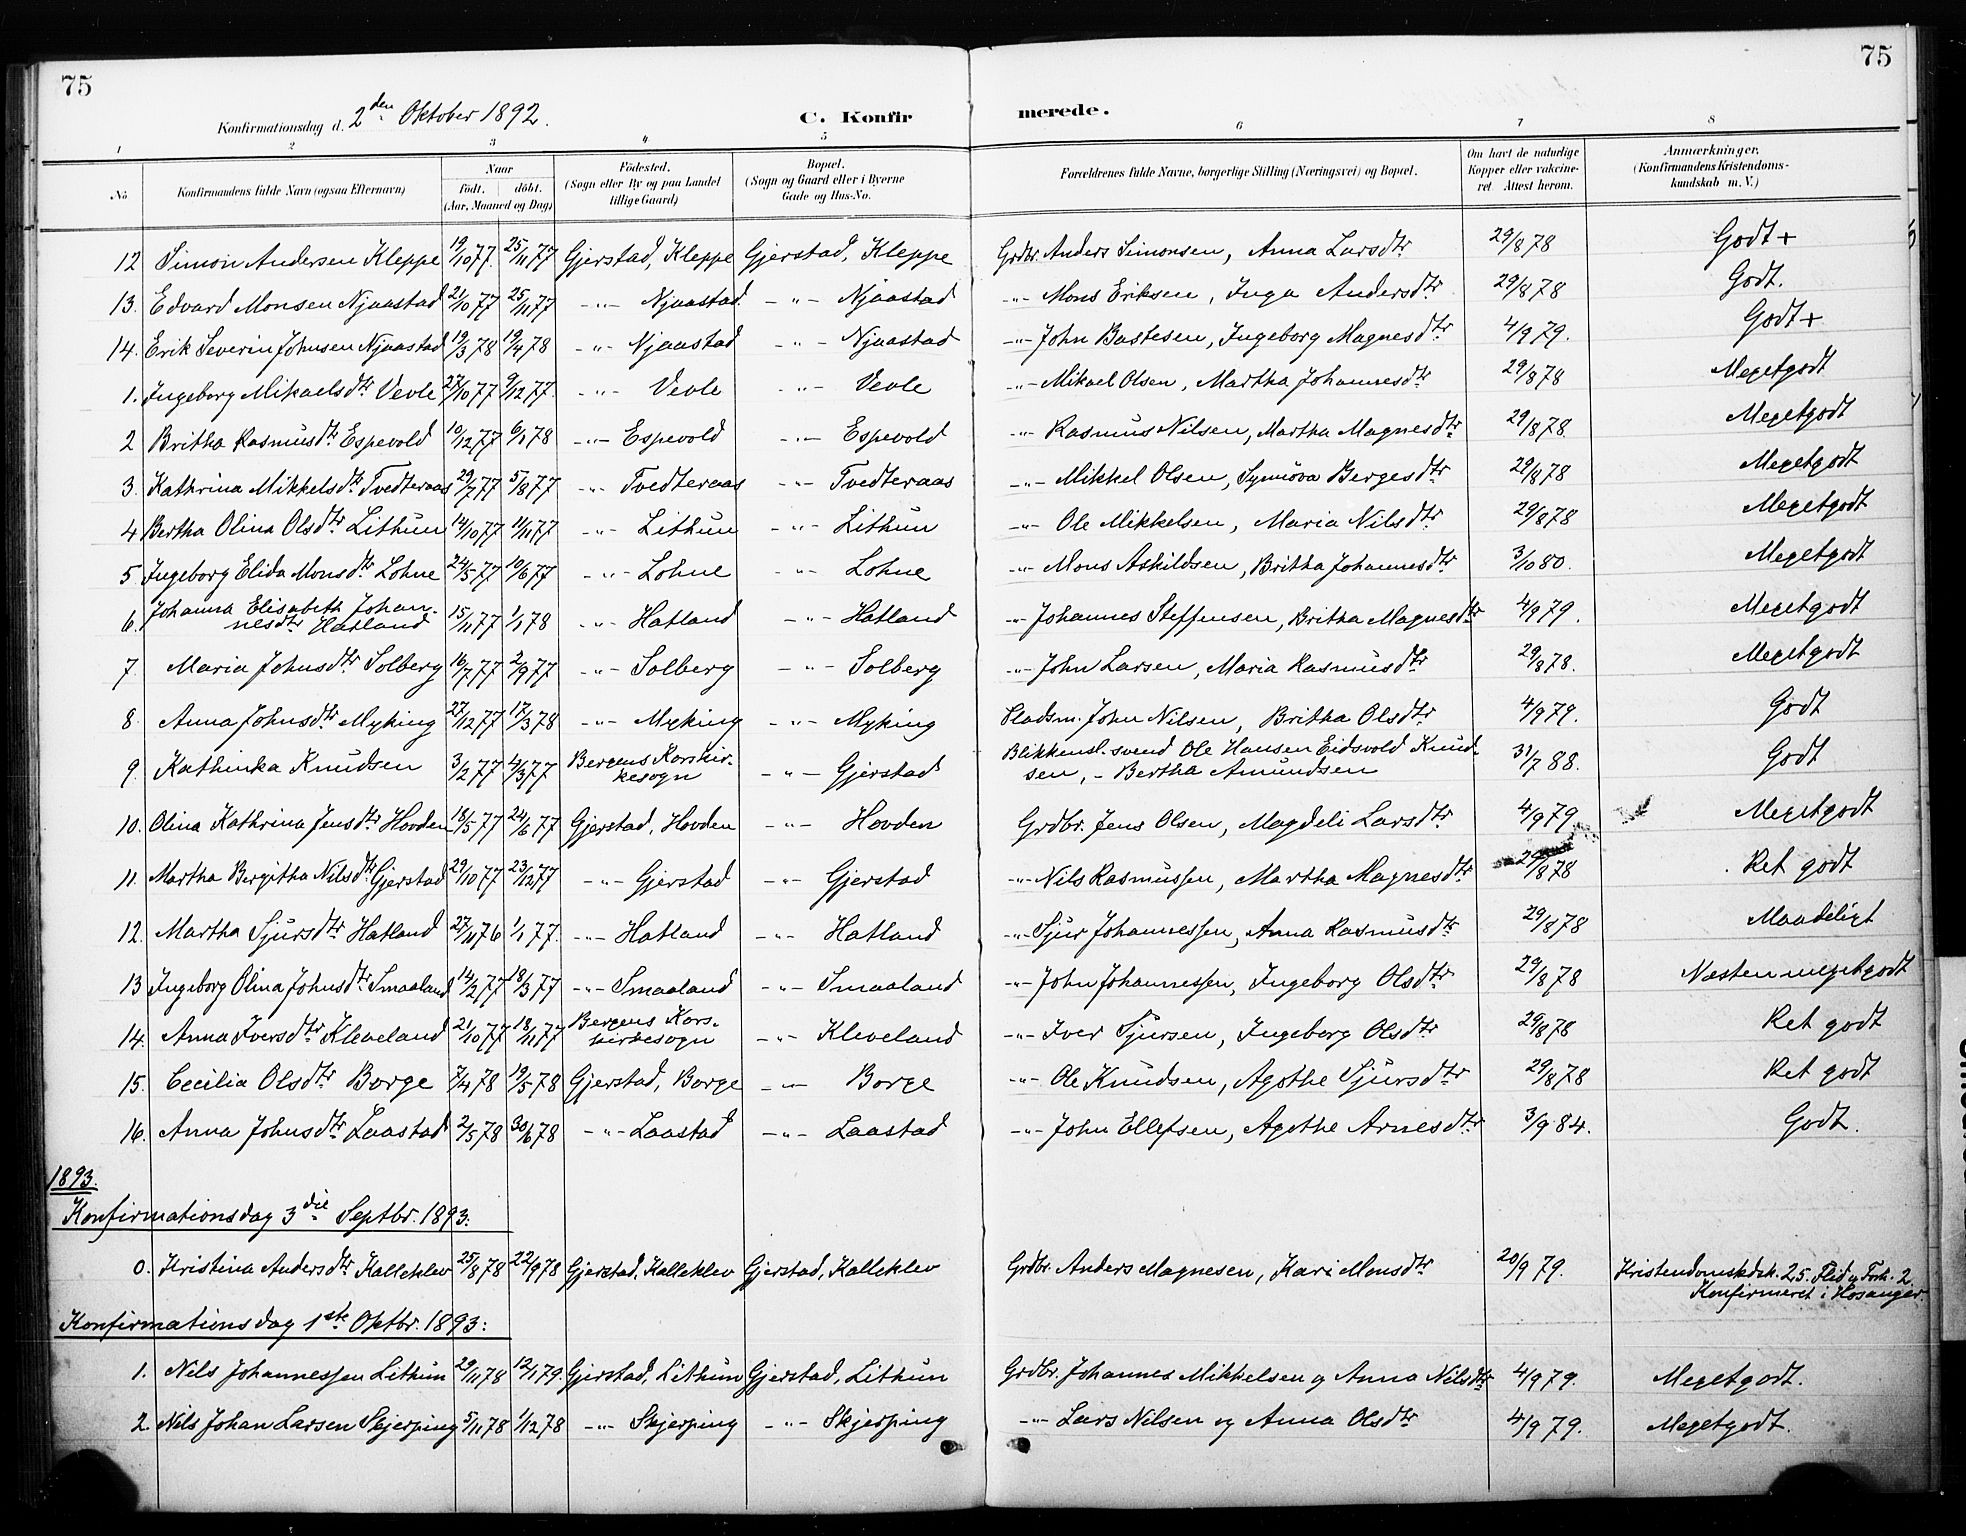 75
75
Konfirmationsdag d. 2den Oktober 1892.
C. Konfirmerede.
1 2 3 4 5 6 7 8
No
Konfirmandens fulde Navn (ogsaa Efternavn)
Naar
födt. döbt.
(Aar, Maaned og Dag)
Födested.
(Sogn eller By og paa Landet
tillige Gaard)
Bopæl.
(Sogn og Gaard eller i Byerne
Gade og Hus-No.
Forældrenes fulde Navne, borgerlige Stilling (Næringsvei) og Bopæl.
Om havt de naturlige
Kopper eller vakcine-
ret. Attest herom.
Anmærkninger.
(Konfirmandens Kristendoms-
kundskab m. V.)
12 Simon Andersen Kleppe 19/10 77. 25/11 77 Gjerstad, Kleppe Gjerstad, Kleppe Grdbr. Anders Simonsen, Anna Larsdtr 29/8 78 Godt +
13. Edvard Monsen Njaastad 21/10 77 25/11 77 -"- Njaastad -"- Njaastad -"- Mons Eriksen, Inga Andersdtr 29/8 78 Godt.
14. Erik Severin Johnsen Njaastad 19/3 78 19/4 78 -"- Njaastad -"- Njaastad -"- John Bastesen, Ingeborg Magnesdtr 4/9 79. Godt +
1. Ingeborg Mikaelsdtr Vevle 27/10 77 9/12 77. -"- Vevle -"- Vevle -"- Mikael Olsen, Martha Johannesdtr 29/8 78 Megetgodt
2 Britha Rasmusdtr Espevold 10/12 77 6/1 78 -"- Espevold -"- Espevold -"- Rasmus Nilsen, Martha Magnesdtr 29/8 78. Megetgodt
3. Kathrina Mikkelsdtr Tvedteraas 29/7 77 5/8 77 -"- Tvedteraas -"- Tvedteraas -"- Mikkel Olsen, Synnöva Bergesdtr 29/8 78 Megetgodt
4 Bertha Olina Olsdtr Lithun 14/10 77 11/11 77 -"- Lithun -"- Lithun -"- Ole Mikkelsen, Maria Nilsdtr 29/8 78 Megetgodt
5 Ingeborg Elida Monsdtr Lohne 24/5 77 10/6 77 -"- Lohne -"- Lohne -"- Mons Askildsen, Britha Johannesdtr 3/10 80. Megetgodt
6. Johanna Elisabeth Johan-
nesdtr Hatland 15/11 77 1/1 78 -"- Hatland -"- Hatland -"- Johannes Steffensen, Britha Magnesdtr 4/9 79. Megetgodt
7 Maria Johnsdtr Solberg 16/7 77 2/9 77 -"- Solberg -"- Solberg -"- John Larsen, Maria Rasmusdtr 29/8 78. Megetgodt
8. Anna Johnsdtr Myking 27/12 77 17/3 78 -"- Myking -"- Myking Pladsm. John Nilsen, Britha Olsdtr 4/9 79. Godt
9. Kathinka Knudsen 3/2 77 4/3 77 Bergens Korskir-
kesogn -"- Gjerstad Blikkensl. svend Ole Hansen Eidsvold Knud-
sen, - Bertha Amundsen 31/7 88. Godt
10. Olina Kathrina Jensdtr Hovden 18/5 77 24/6 77 Gjerstad, Hovden -"- Hovden Grdbr. Jens Olsen, Magdeli Larsdtr 4/9 79 Megetgodt
11. Martha Bergitha Nilsdtr Gjerstad 29/10 77 23/12 77 -"- Gjerstad -"- Gjerstad -"- Nils Rasmussen, Martha Magnesdtr 29/8 78 Ret godt
12. Martha Sjursdtr Hatland 27/11 76 1/1 77. -"- Hatland -"- Hatland -"- Sjur Johannessen, Anna Rasmusdtr 29/8 78 Maadeligt
13 Ingeborg Olina Johnsdtr Smaaland 14/2 77 18/3 77 -"- Smaaland -"- Smaaland -"- John Johannessen, Ingeborg Olsdtr 29/8 78 Næsten megetgodt
14. Anna Iversdtr Kleveland 21/10 77 18/11 77 Bergens Kors-
kirkesogn -"- Kleveland -"- Iver Sjursen, Ingeborg Olsdtr 29/8 78 Ret godt
15. Cecilia Olsdtr Borge 7/4 78 19/5 78 Gjerstad, Borge -"- Borge -"- Ole Knudsen, Agothe Sjursdtr 29/8 78 Ret godt
16. Anna Johnsdtr Laastad 2/5 78 30/6 78 -"- Laastad -"- Laastad -"- John Ellefsen, Agothe Arnesdtr 3/9 84. Godt.
1893.
Konfirmationsdag 3die Septbr. 1893:
0. Kristina Andersdtr Kalleklev 25/8 78 22/9 78 Gjerstad, Kalleklev Gjerstad, Kalleklev Grdbr. Anders Magnesen, Kari Monsdtr 20/9 79. Kristendomskdsk. 2,5. Flid og Forh. 2.
Konfirmeret i Hosanger.
Konfirmationsdag 1ste Oktbr. 1893:
1. Nils Johannessen Lithun 29/11 78 12/1 79. Gjerstad, Lithun Gjerstad, Lithun Grdbr. Johannes Mikkelsen og Anna Nilsdtr 4/9 79. Megetgodt.
2. Nils Johan Larsen Skjerping 5/11 78 1/12 78 -"- Skjerping -"- Skjerping -"- Lars Nilsen og Anna Olsdtr 4/9 79. Megetgodt.